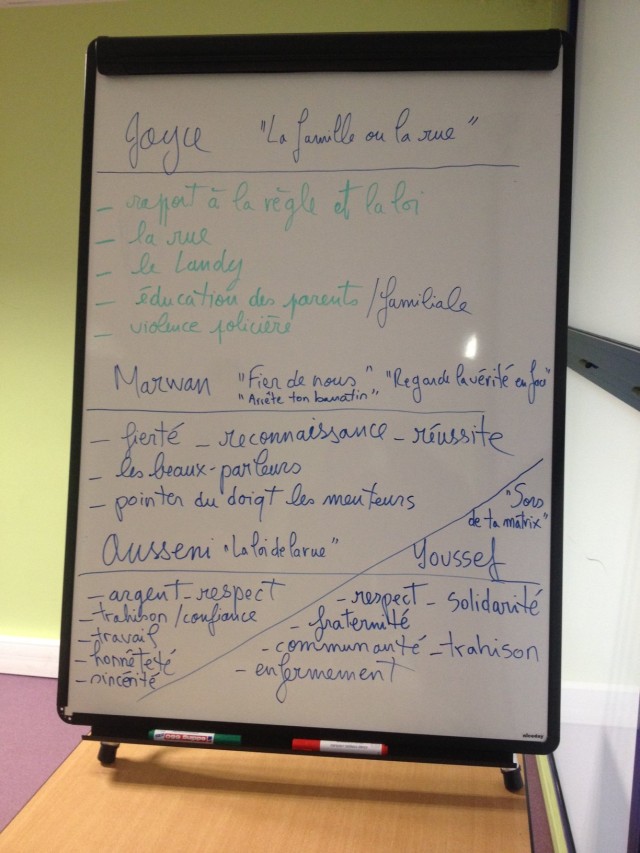 Joyce "La famille ou la rue"
_ rapport à la règle et la loi
_ la rue
_ le Landy
_ éducation des parents / familiale
_ violence policière
Marwan "Fier de nous" "Regarde la vérité en face"
"Arrête ton baratin"
_ fierté _ reconnaissance _ réussite
_ les beaux-parleurs
_ pointer du doigt les menteurs
"Sors
de ta matrix"
Ousseni "La loi de la rue"
Youssef
_ argent _ respect
_ trahison / confiance
_ travail
_ honnêteté
_ sincérité
_ respect _ solidarité
_ fraternité
_ communauté _ trahison
_ enfermement